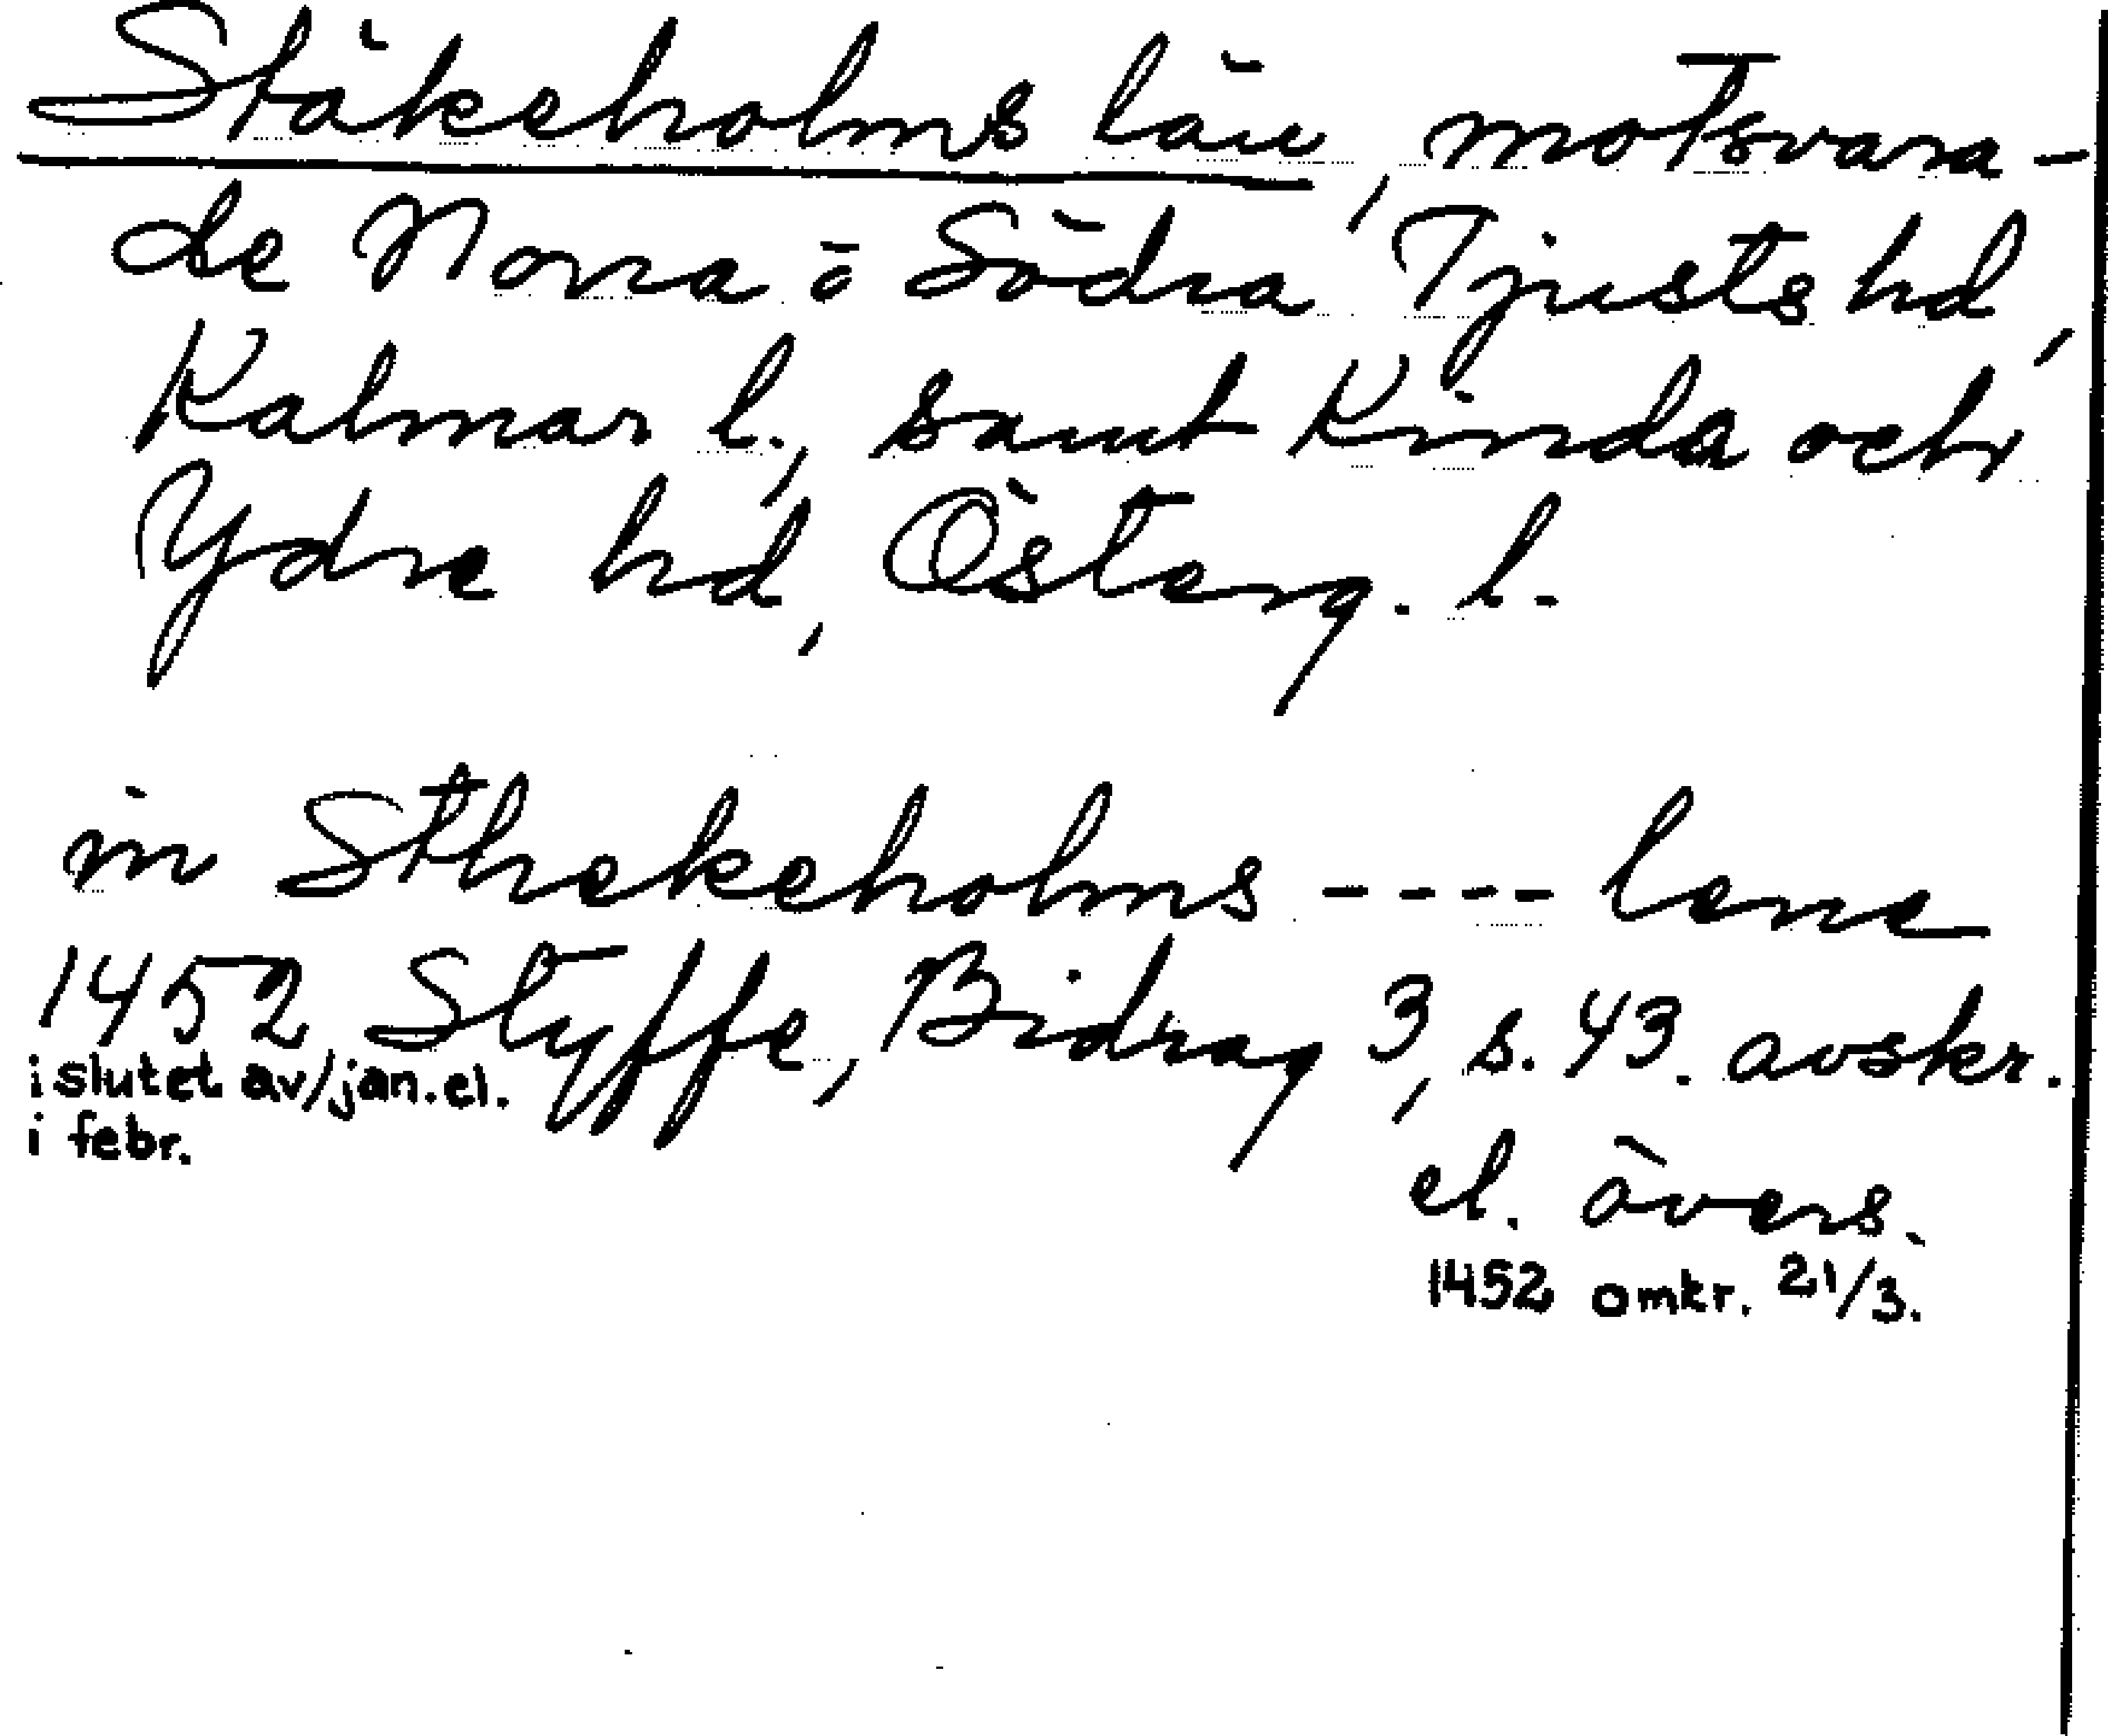 Stäkeholms län, motsvara-
de Norra o Södra Tjusts hd,
Kalmar l., samt Kinda och
Ydre hd, Österg. l.
in Sthekeholms ---- lene
1452 Styffe, Bidrag 3, s. 43. avskr.
i slutet av/jan. el.
i febr.
el. övers.
1452 omkr. 21/3.